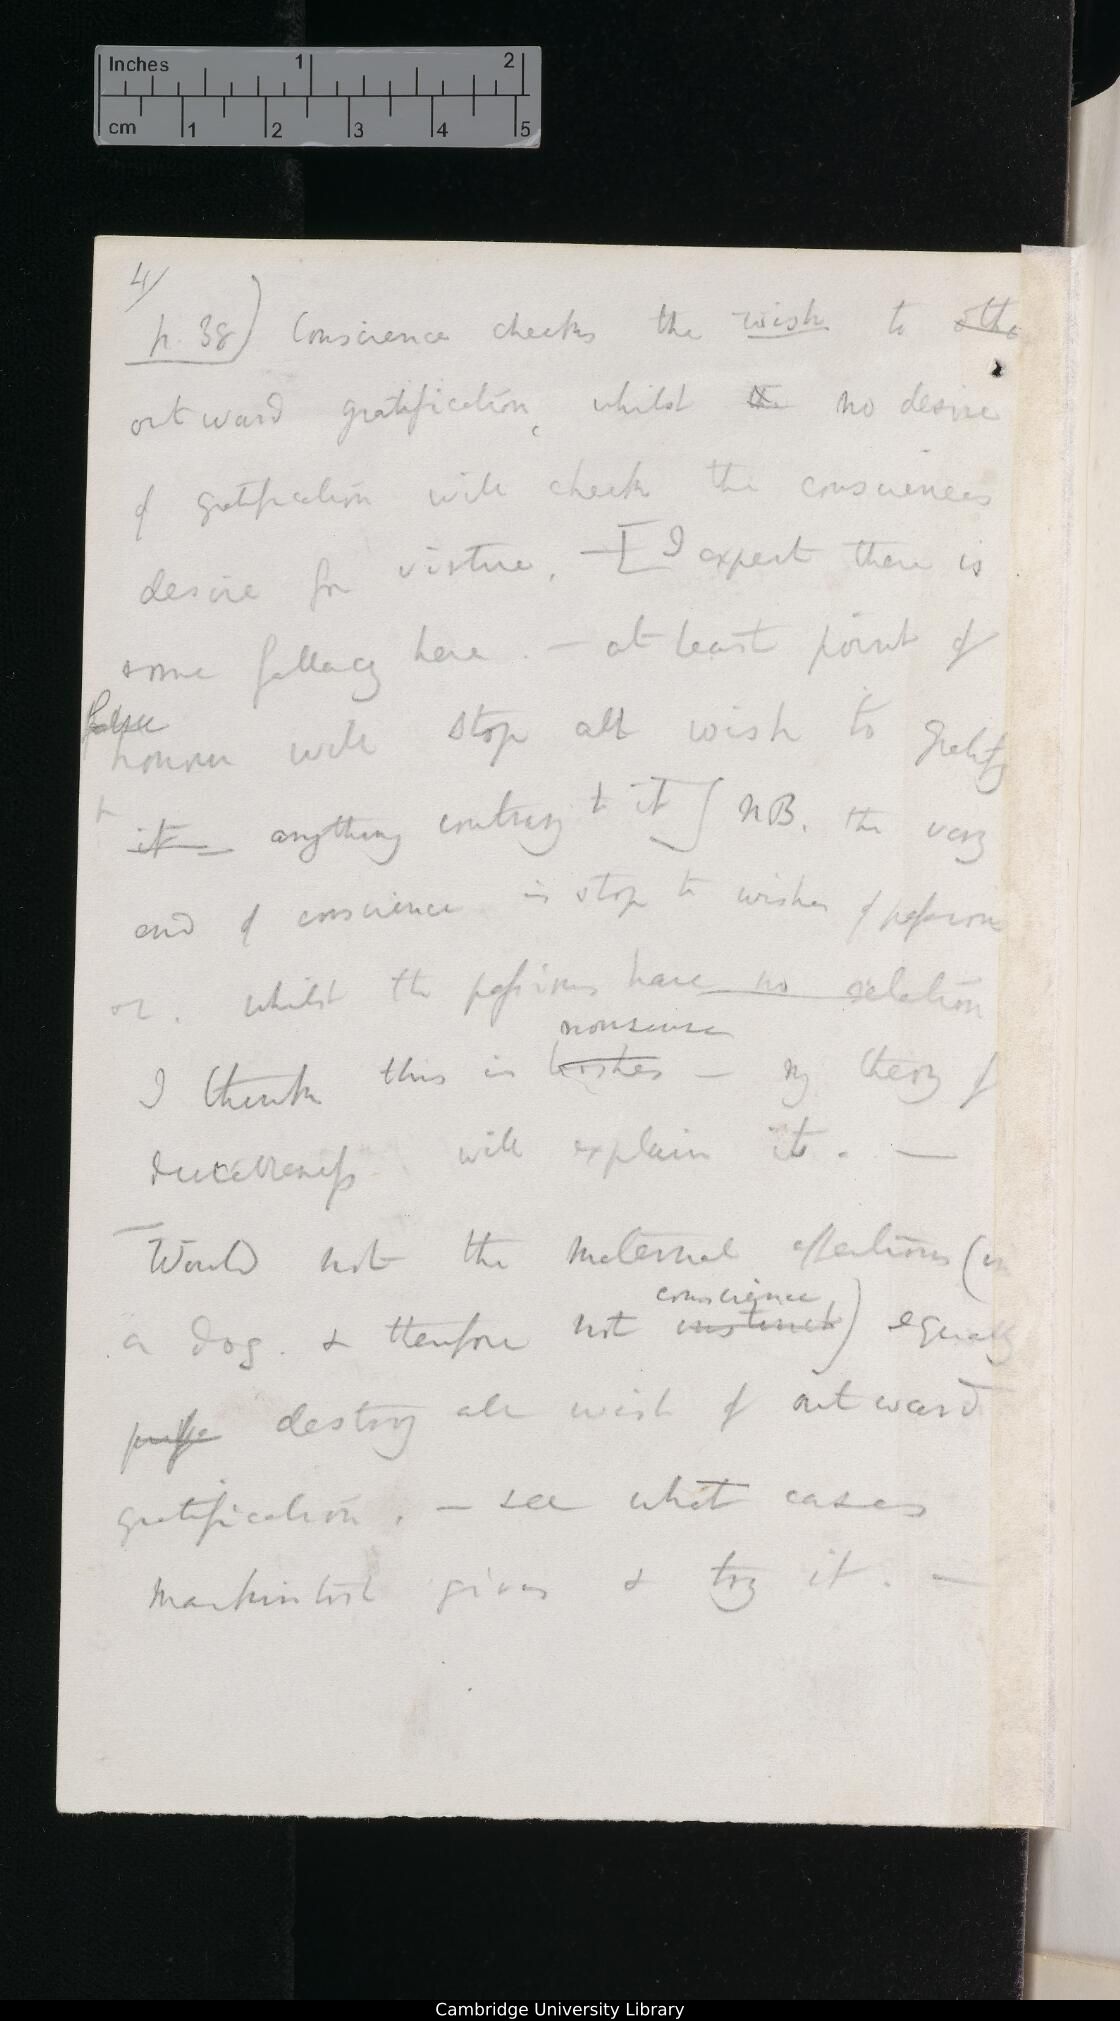 Inches 1 2
cm 1 2 3 4 5
4/
p. 38) Conscience checks the wish to othe
outward gratification, whilst the no desire
of gratification will check the consciences
desire for virtue. — [I expect there is
some fallacy here. — at least point of
false
honour will stop all wish to gratify
it anything contrary to it] NB. the very
end of conscience is stop to wishes of passion
or. whilst the passions have no relation
nonsense
I think this is — my theory of
will explain it. —
Would not the maternal affections (in
conscience
a dog. & therefore not instinct) equally
destroy all wish of outward
gratification. — see what cases
Mackintosh gives & try it. —
Cambridge University Library